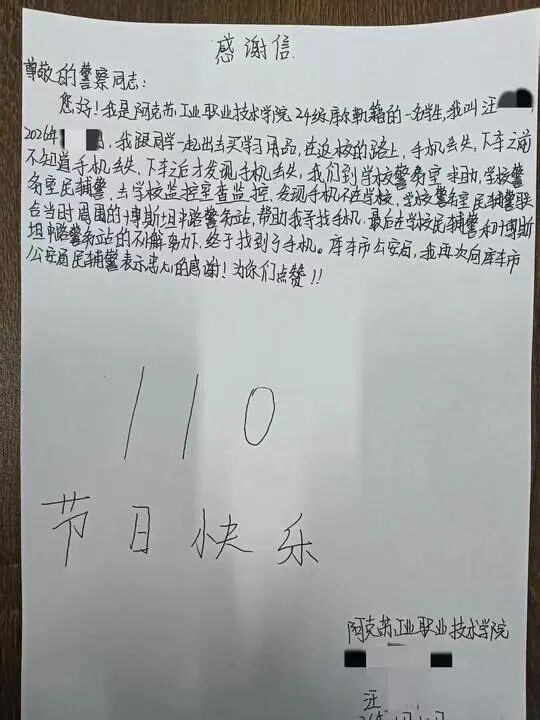 感谢信
尊敬的警察同志:
您好!我是阿克苏工业职业技术学院24级库尔勒籍的一名学生,我叫汪
2026年,我跟同学一起出去买学习用品,在返校的路上,手机丢失,下车之前
不知道手机丢失,下车之后才发现手机丢失,我们到学校警务室求助,学校警
务室民辅警,去学校监控室查监控,发现手机不在学校,学校警务室民辅警联
合当时周围的博斯坦中路警务站,帮助我寻找手机,最后在学校民辅警和博斯
坦中路警务站的不懈努力下,终于找到了手机。库车市公安局,我再次向库车市
公安局民辅警表示衷心的感谢!为你们点赞!!
110
节日快乐
阿克苏工业职业技术学院
汪